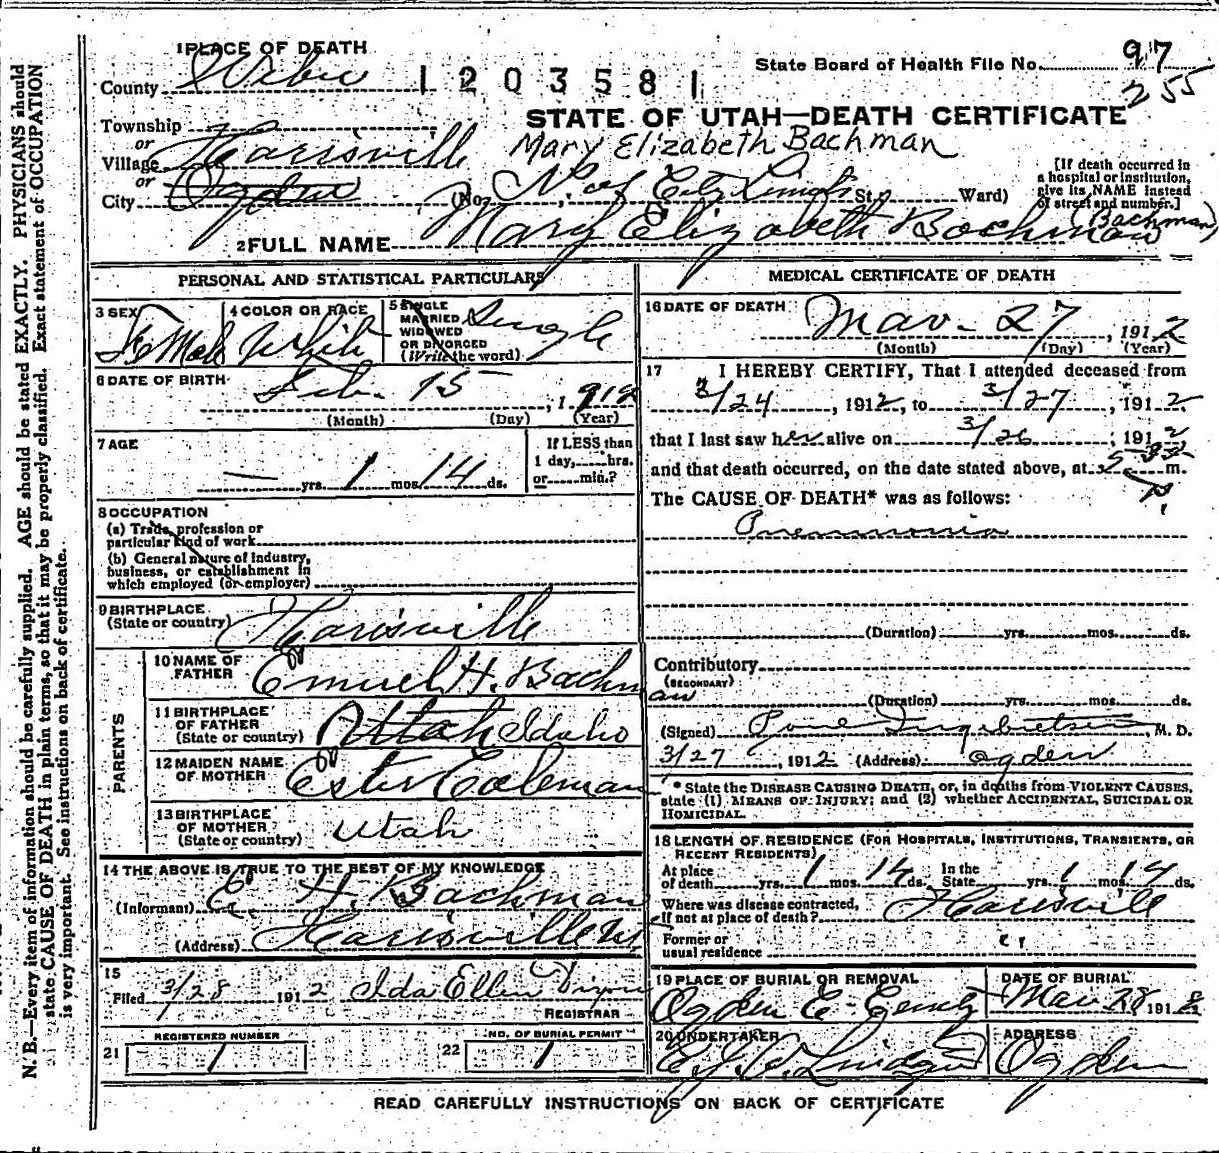 1 PLACE OF DEATH
County Weber
1203581
State Board of Health File No. 97
255
STATE OF UTAH—DEATH CERTIFICATE
Township
or
Village Harisville
Mary Elizabeth Bachman
or
City Ogden (No. N. of City Limits St. Ward)
[If death occurred in
a hospital or institution,
give its NAME instead
of street and number.]
2 FULL NAME Mary Elizabeth Bochman (Bachman)
PERSONAL AND STATISTICAL PARTICULARS
3 SEX Female
4 COLOR OR RACE White
5 SINGLE
MARRIED
WIDOWED
OR DIVORCED
(Write the word) Single
6 DATE OF BIRTH Feb. 15, 1912
(Month) (Day) (Year)
7 AGE
— yrs. 1 mos. 14 ds.
If LESS than
1 day, hrs.
or min.?
8 OCCUPATION
(a) Trade, profession or
particular kind of work
(b) General nature of industry,
business, or establishment in
which employed (or employer)
9 BIRTHPLACE
(State or country) Harisville
PARENTS
10 NAME OF
FATHER Emuel H. Bachman
11 BIRTHPLACE
OF FATHER
(State or country) Utah Idaho
12 MAIDEN NAME
OF MOTHER Ester Coleman
13 BIRTHPLACE
OF MOTHER
(State or country) Utah
14 THE ABOVE IS TRUE TO THE BEST OF MY KNOWLEDGE
(Informant) E. H. Bachman
(Address) Harisville Ut
15
Filed 3/28 1912 Ida Ellen
REGISTRAR
21 REGISTERED NUMBER 1
22 NO. OF BURIAL PERMIT 1
MEDICAL CERTIFICATE OF DEATH
16 DATE OF DEATH Mar. 27, 1912
(Month) (Day) (Year)
17 I HEREBY CERTIFY, That I attended deceased from
3/24, 1912, to 3/27, 1912.
that I last saw her alive on 3/26, 1912
and that death occurred, on the date stated above, at m.
P.
The CAUSE OF DEATH* was as follows:
Pneumonia
(Duration) yrs. mos. ds.
Contributory
(SECONDARY)
(Duration) yrs. mos. ds.
(Signed) M. D.
3/27, 1912 (Address) Ogden
* State the DISEASE CAUSING DEATH, or, in deaths from VIOLENT CAUSES,
state (1) MEANS OF INJURY; and (2) whether ACCIDENTAL, SUICIDAL OR
HOMICIDAL.
18 LENGTH OF RESIDENCE (FOR HOSPITALS, INSTITUTIONS, TRANSIENTS, OR
RECENT RESIDENTS)
At place
of death yrs. 1 mos. 14 ds. In the
State 1 mos. 14 ds.
Where was disease contracted,
if not at place of death? Harisville
Former or
usual residence "
19 PLACE OF BURIAL OR REMOVAL
Ogden
DATE OF BURIAL
Mar 28 1912
20 UNDERTAKER
ADDRESS
Ogden
READ CAREFULLY INSTRUCTIONS ON BACK OF CERTIFICATE
N. B.—Every item of information should be carefully supplied. AGE should be stated EXACTLY. PHYSICIANS should
state CAUSE OF DEATH in plain terms, so that it may be properly classified. Exact statement of OCCUPATION
is very important. See instructions on back of certificate.